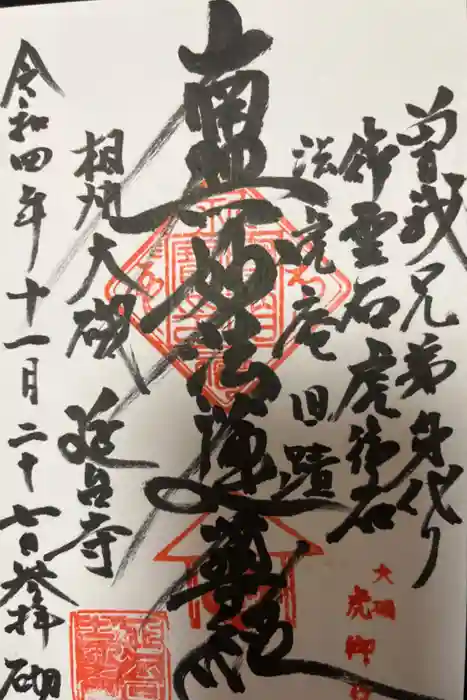 曽我兄弟身代り
御霊石虎御石
法虎庵旧蹟
南無妙法蓮華経
相州大磯
延台寺
令和四年十一月二十七日参拝砌
大磯
虎御石
延台寺